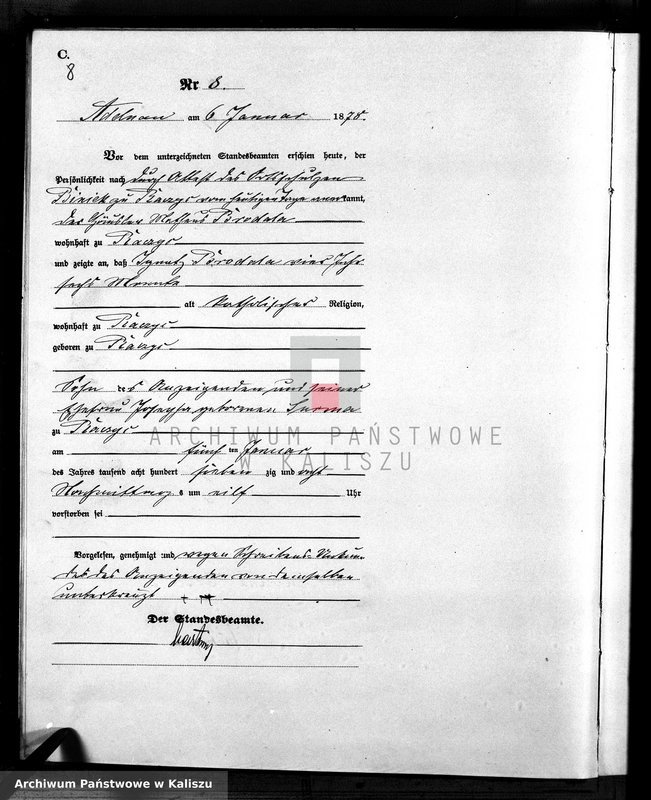 C.
8
Nr 8.
Adelnau am 6 Januar 1878.
Vor dem unterzeichneten Standesbeamten erschien heute, der
Persönlichkeit nach durch Attest des Ortsschulzen
zu vom heutigen Tage anerkannt,
der Häusler Matheus Brodala
wohnhaft zu
und zeigte an, daß Ignatz Brodala vier Jahr
sechs Monate
alt katholischer Religion,
wohnhaft zu
geboren zu
Sohn des Anzeigenden und seiner
Ehefrau Josepha geborenen Surma
zu
am fünf ten Januar
des Jahres tausend acht hundert sieben zig und acht
Nachmittag s um eilf Uhr
verstorben sei
Vorgelesen, genehmigt und wegen Schreibens-Unkun-
de des Anzeigenden von demselben
unterkreuzt + + +
Der Standesbeamte.
ARCHIWUM PAŃSTWOWE
W KALISZU
Archiwum Państwowe w Kaliszu